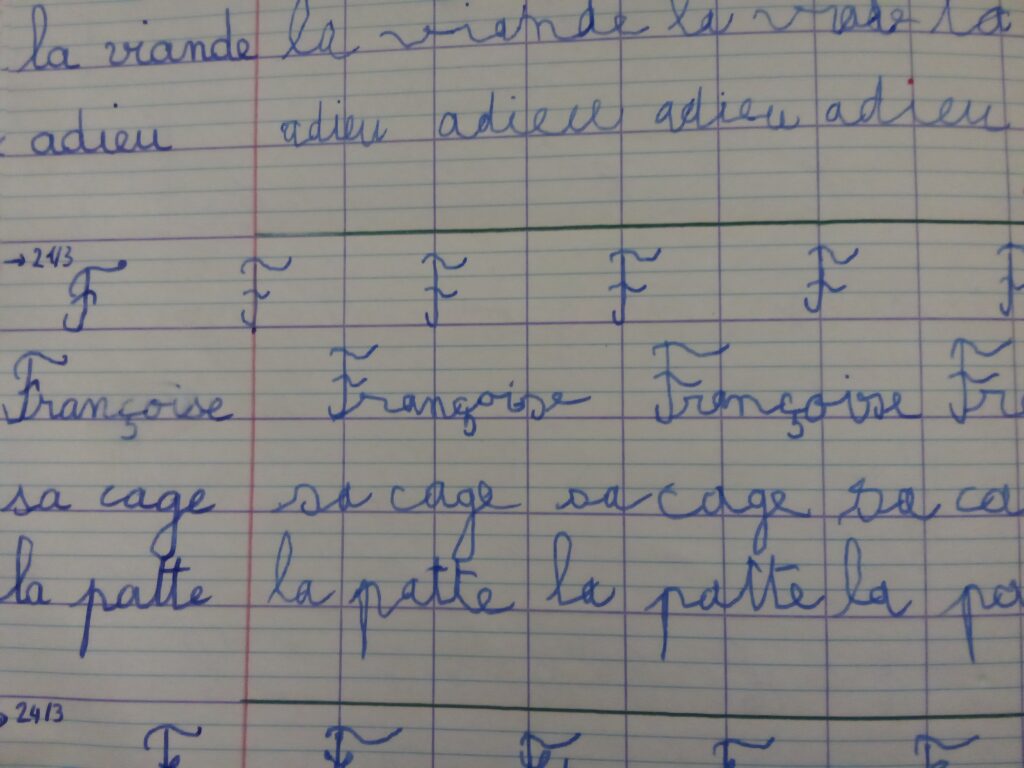 la viande la viande la viade la
adieu adieu adieu adieu adieu
→21/3
F F F F F F
Françoise Françoise Françoise Fra
sa cage sa cage sa cage sa ca
la patte la patte la patte la pa
24/3